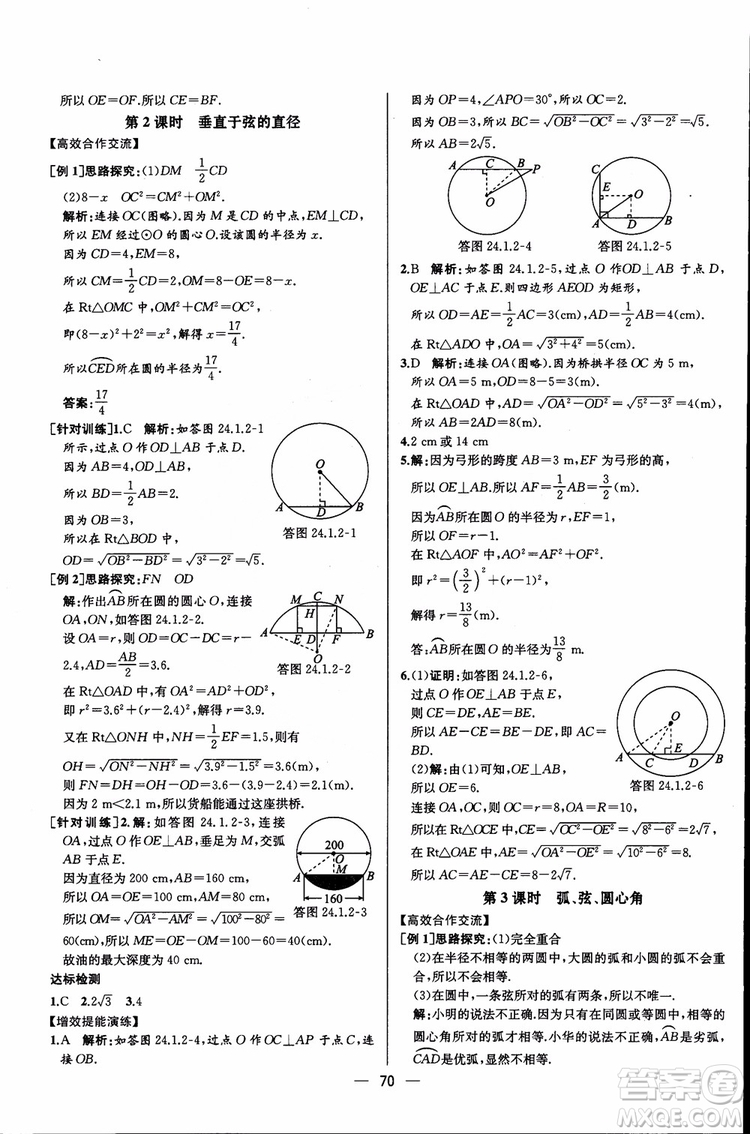 所以OE=OF.所以CE=BF.
第2课时 垂直于弦的直径
【高效合作交流】
[例1]思路探究:(1)DM 1/2CD
(2)8-x OC²=CM²+OM².
解析:连接OC(图略).因为M是CD的中点,EM⊥CD,
所以EM经过⊙O的圆心O.设该圆的半径为x.
因为CD=4,EM=8,
所以CM=1/2CD=2,OM=8-OE=8-x.
在Rt△OMC中,OM²+CM²=OC²,
即(8-x)²+2²=x²,解得x=17/4.
所以CED所在圆的半径为17/4.
答案:17/4
[针对训练]1.C 解析:如答图24.1.2-1
所示,过点O作OD⊥AB于点D.
因为AB=4,OD⊥AB,
所以BD=1/2AB=2.
因为OB=3,
所以在Rt△BOD中,
OD=√(OB²-BD²)=√(3²-2²)=√5.
O
A
D
B
答图24.1.2-1
[例2]思路探究:FN OD
解:作出AB所在圆的圆心O,连接
OA,ON,如答图24.1.2-2.
设OA=r,则OD=OC-DC=r-
2.4,AD=AB/2=3.6.
在Rt△OAD中,OA²=AD²+OD²,
即r²=3.6²+(r-2.4)²,解得r=3.9.
M C N
H
A E D F B
O
答图24.1.2-2
又在Rt△OHN中,NH=1/2EF=1.5,则有
OH=√(ON²-NH²)=√(3.9²-1.5²)=3.6.
所以FN=DH=OH-OD=3.6-(3.9-2.4)=2.1(m).
因为2 m<2.1 m,所以货船能通过这座拱桥.
[针对训练]2.解:如答图24.1.2-3,连接
OA,过点O作OM⊥AB,垂足为M,交弧
AB于点E.
因为直径为200 cm,AB=160 cm,
所以OA=OE=100 cm,AM=80 cm.
所以OM=√(OA²-AM²)=√(100²-80²)=
60(cm).所以ME=OE-OM=100-60=40(cm).
故油的最大深度为40 cm.
200
O
A M B
160
答图24.1.2-3
达标检测
1.C 2.2√3 3.4
【增效提能演练】
1.A 解析:如答图24.1.2-4,过点O作OC⊥AP于点C,连
接OB.
因为OP=4,∠APO=30°,所以OC=2.
因为OB=3,所以BC=√(OB²-OC²)=√(3²-2²)=√5.
所以AB=2√5.
A C B P
O
答图24.1.2-4
C
E O
A D B
答图24.1.2-5
2.B 解析:如答图24.1.2-5,过点O作OD⊥AB于点D,
OE⊥AC于点E.则四边形AEOD为矩形,
所以OD=AE=1/2AC=3(cm),AD=1/2AB=4(cm).
在Rt△ADO中,OA=√(3²+4²)=5(cm).
3.D 解析:连接OA(图略).因为桥拱半径OC为5 m,
所以OA=5 m,所以OD=8-5=3(m).
在Rt△AOD中,AD=√(OA²-OD²)=√(5²-3²)=4(m).
所以AB=2AD=8(m).
4.2 cm或14 cm
5.解:因为弓形的跨度AB=3 m,EF为弓形的高,
所以OE⊥AB.所以AF=1/2AB=3/2(m).
因为AB所在圆O的半径为r,EF=1,
所以OF=r-1.
在Rt△AOF中,AO²=AF²+OF²,
即r²=(3/2)²+(r-1)²,
解得r=13/8(m).
答:AB所在圆O的半径为13/8 m.
6.(1)证明:如答图24.1.2-6,
过点O作OE⊥AB于点E,
则CE=DE,AE=BE.
所以AE-CE=BE-DE,即AC=
BD.
(2)解:由(1)可知,OE⊥AB,
所以OE=6.
O
A C E D B
答图24.1.2-6
连接OA,OC,则OA=10,OC=8.
所以在Rt△OCE中,CE=√(OC²-OE²)=√(8²-6²)=2√7,
在Rt△OAE中,AE=√(OA²-OE²)=√(10²-6²)=8.
所以AC=AE-CE=8-2√7.
第3课时 弧、弦、圆心角
【高效合作交流】
[例1]思路探究:(1)完全重合
(2)在半径不相等的两圆中,大圆的弧和小圆的弧不会
重合,所以它们不会相等.
(3)在圆中,一条弦所对的弧有两条,它们不一定相等.
解:小明的说法不正确,因为只有在同圆或等圆中,相等的
圆心角所对的弧才相等.小华的说法不正确,AB是劣弧,
CAD是优弧,显然不相等.
70
答案圈
MXQE.COM